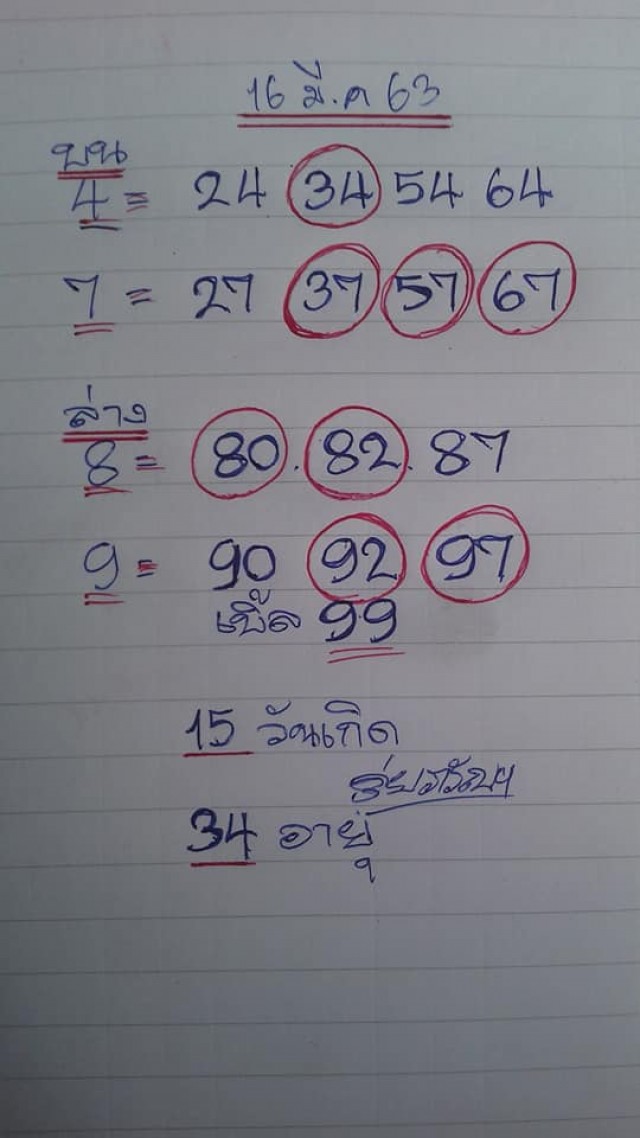 16 มี.ค 63
บน
4 = 24 34 54 64
7 = 27 37 57 67
ล่าง
8 = 80. 82. 87
9 = 90 92 97
เบิ้ล 99
15 วันเกิด
34 อายุ